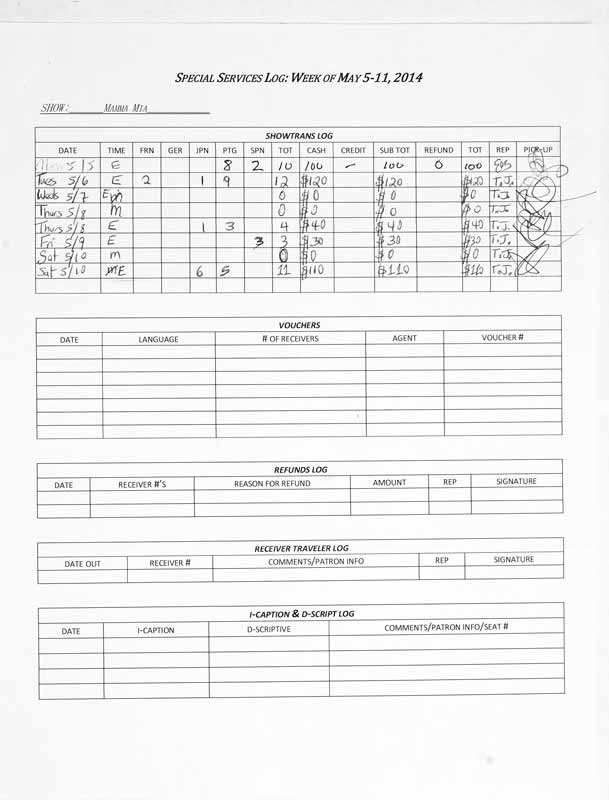 SPECIAL SERVICES LOG: WEEK OF MAY 5-11, 2014
SHOW: MAMMA MIA
SHOWTRANS LOG
DATE TIME FRN GER JPN PTG SPN TOT CASH CREDIT SUB TOT REFUND TOT REP PICK-UP
5/5 E 8 2 10 100 – 100 0 100
Tues 5/6 E 2 1 9 12 $120 $120 $120 T.J.
Weds 5/7 E 0 $0 $0 $0 T.J.
Thurs 5/8 M 0 $0 $0 $0 T.J.
Thurs 5/8 E 1 3 4 $40 $40 $40 T.J.
Fri 5/9 E 3 3 $30 $30 $30 T.J.
Sat 5/10 M 0 $0 $0 $0 T.J.
Sat 5/10 E 6 5 11 $110 $110 $110 T.J.
VOUCHERS
DATE LANGUAGE # OF RECEIVERS AGENT VOUCHER #
REFUNDS LOG
DATE RECEIVER #'S REASON FOR REFUND AMOUNT REP SIGNATURE
RECEIVER TRAVELER LOG
DATE OUT RECEIVER # COMMENTS/PATRON INFO REP SIGNATURE
I-CAPTION & D-SCRIPT LOG
DATE I-CAPTION D-SCRIPTIVE COMMENTS/PATRON INFO/SEAT #